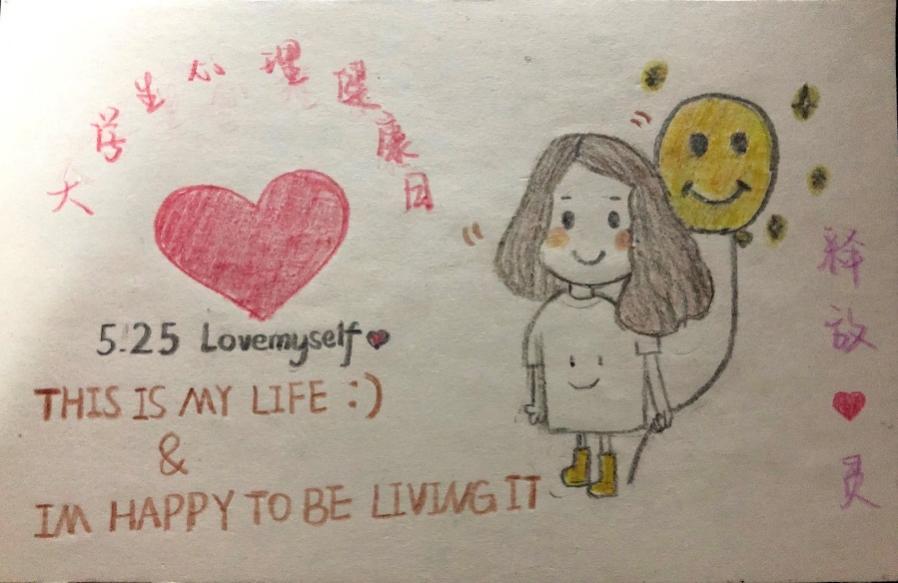 大学生心理健康日
5.25 Lovemyself
THIS IS MY LIFE :)
&
IM HAPPY TO BE LIVING IT
释放❤员